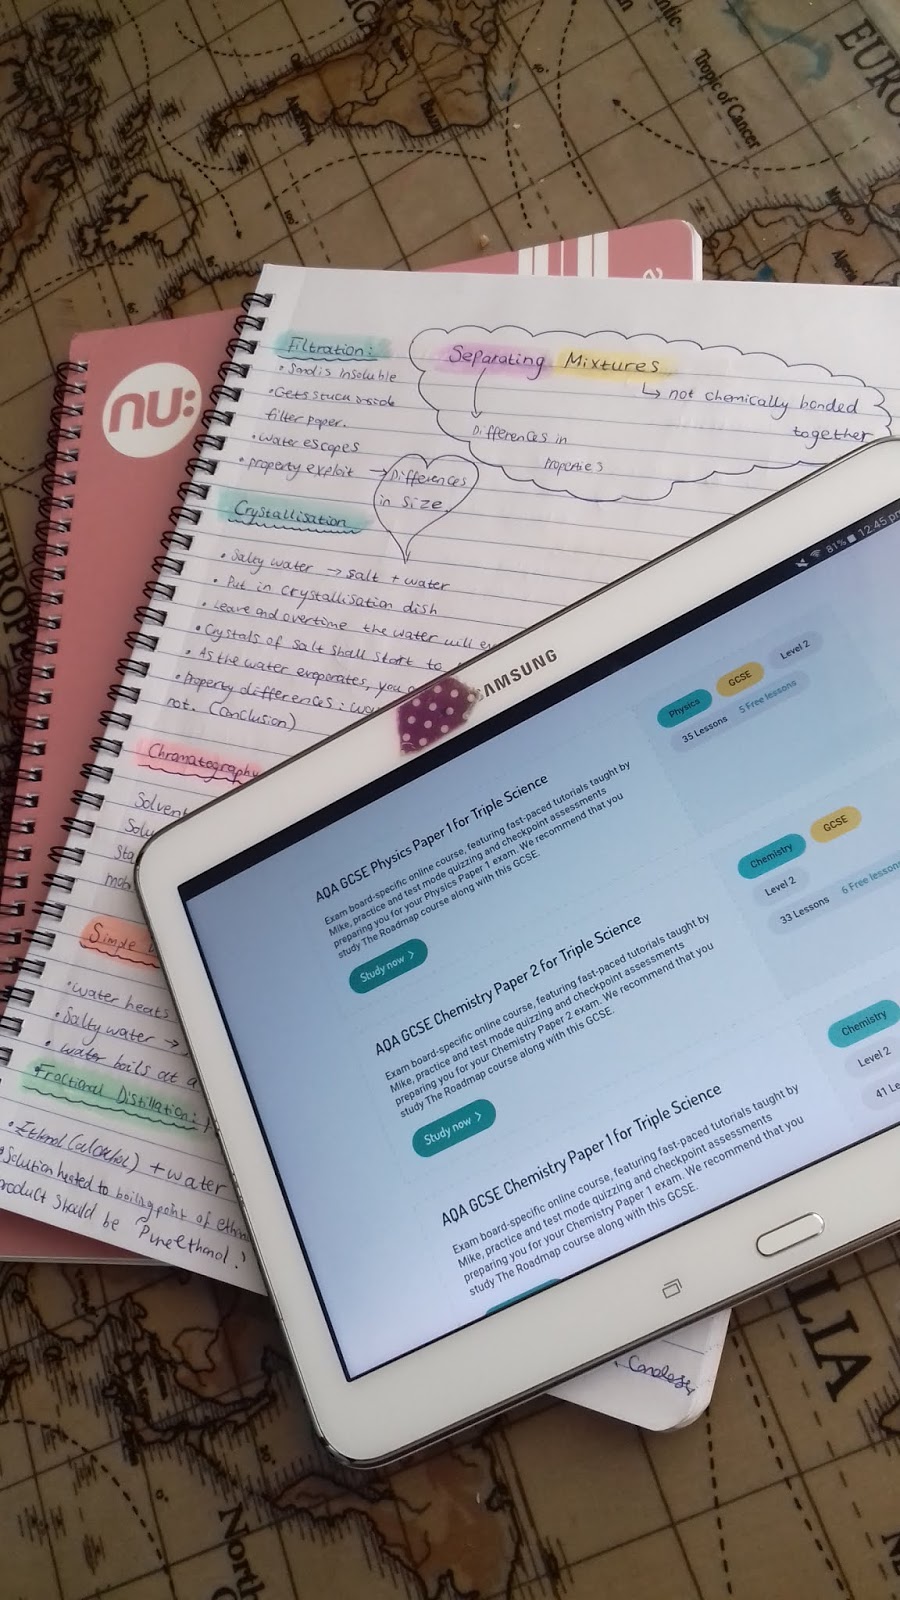 EURO
Tropic of Cancer
Morocco
Algeria
nu:
Filtration:
• Sand is insoluble
• Gets stuck inside
filter paper.
• Water escapes
• property exploit → Differences
in size
Separating Mixtures
↳ not chemically bonded
together
Differences in
Properties
Crystallisation
• Salty water → salt + water
• Put in crystallisation dish
• Leave and overtime the water will
• Crystals of salt shall start to
• As the water evaporates, you
• Property differences:
not. (Conclusion)
Chromatography
Solvent
Simple
• Water heats
• Salty water →
• water boils at a
Fractional Distillation:
• Ethanol (alcohol) + water
• Solution heated to boiling point of
product should be 'Pure ethanol.'
SAMSUNG
81% 12:45 pm
Physics GCSE Level 2
35 Lessons 5 Free lessons
AQA GCSE Physics Paper 1 for Triple Science
Exam board-specific online course, featuring fast-paced tutorials taught by
Mike, practice and test mode quizzing and checkpoint assessments
preparing you for your Physics Paper 1 exam. We recommend that you
study The Roadmap course along with this GCSE.
Study now >
Chemistry GCSE
Level 2
33 Lessons 6 Free lessons
AQA GCSE Chemistry Paper 2 for Triple Science
Exam board-specific online course, featuring fast-paced tutorials taught by
Mike, practice and test mode quizzing and checkpoint assessments
preparing you for your Chemistry Paper 2 exam. We recommend that you
study The Roadmap course along with this GCSE.
Study now >
Chemistry
Level 2
41 Le
AQA GCSE Chemistry Paper 1 for Triple Science
Exam board-specific online course, featuring fast-paced tutorials taught by
Mike, practice and test mode quizzing and checkpoint assessments
preparing you for your Chemistry Paper 1 exam. We recommend that you
study The Roadmap course along with this GCSE.
LIA
North